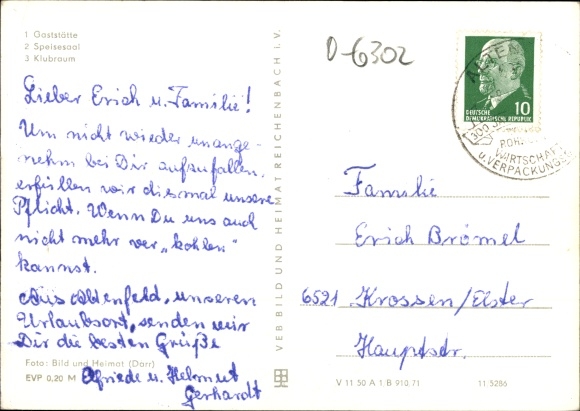 1 Gaststätte
2 Speisesaal
3 Klubraum
D-6302
Lieber Erich u. Familie!
Um nicht wieder unange-
nehm bei Dir aufzufallen,
erfüllen wir diesmal unsere
Pflicht. Wenn Du uns auch
nicht mehr ver„kohlen"
kannst.
Aus Altenfeld, unseren
Urlaubsort, senden wir
Dir die besten Grüße
Elfriede u. Helmut
Gerhardt
Foto: Bild und Heimat (Darr)
EVP 0,20 M
VEB BILD UND HEIMAT REICHENBACH I. V.
DEUTSCHE
DEMOKRATISCHE REPUBLIK
10
300
WIRTSCHAFT
U. VERPACKUNGEN
Familie
Erich Brömel
6521 Krossen/Elster
Hauptstr.
V 11 50 A 1 B 910/71
11 5286